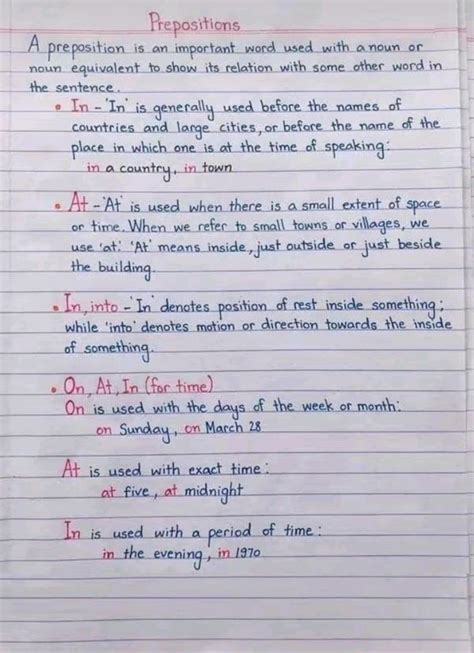 Prepositions
A preposition is an important word used with a noun or
noun equivalent to show its relation with some other word in
the sentence.
• In - 'In' is generally used before the names of
countries and large cities, or before the name of the
place in which one is at the time of speaking:
in a country, in town
• At - 'At' is used when there is a small extent of space
or time. When we refer to small towns or villages, we
use 'at'. 'At' means inside, just outside or just beside
the building.
• In, into - 'In' denotes position of rest inside something;
while 'into' denotes motion or direction towards the inside
of something.
• On, At, In (for time)
On is used with the days of the week or month:
on Sunday, on March 28
At is used with exact time:
at five, at midnight
In is used with a period of time:
in the evening, in 1970